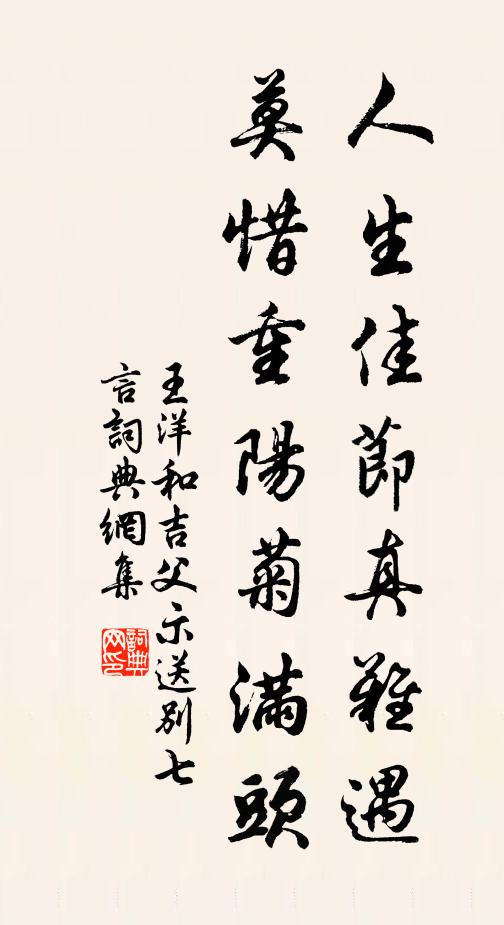 人生佳節真難遇
莫惜重陽菊滿頭
王洋和吉父示送別七
言詞典網集
詞典網印